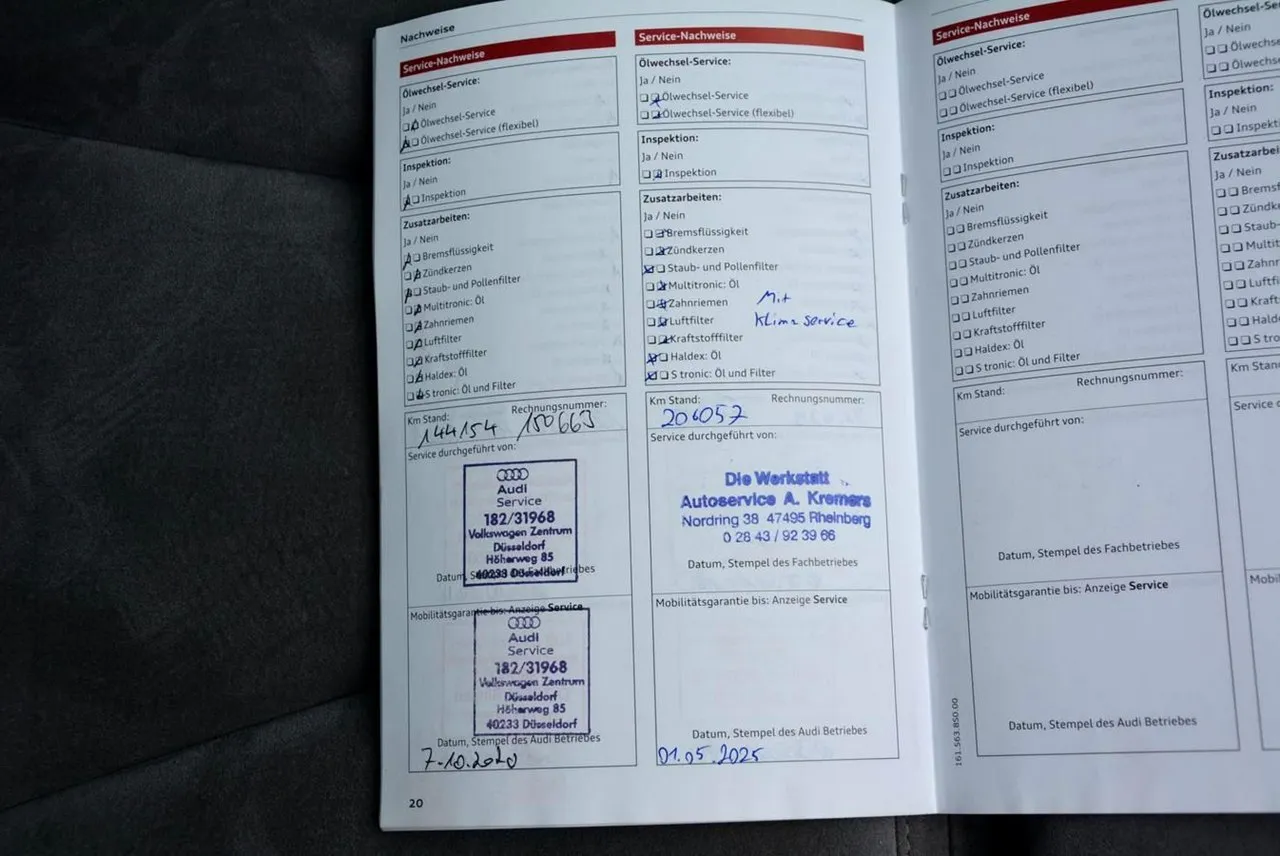 Nachweise
Service-Nachweise
Ölwechsel-Service:
Ja / Nein
Ölwechsel-Service
Ölwechsel-Service (flexibel)
Inspektion:
Ja / Nein
Inspektion
Zusatzarbeiten:
Ja / Nein
Bremsflüssigkeit
Zündkerzen
Staub- und Pollenfilter
Multitronic: Öl
Zahnriemen
Luftfilter
Kraftstofffilter
Haldex: Öl
S tronic: Öl und Filter
Km Stand: Rechnungsnummer:
144154 150663
Service durchgeführt von:
Audi
Service
182/31968
Volkswagen Zentrum
Düsseldorf
Höherweg 85
40233 Düsseldorf
Datum, Stempel des Fachbetriebes
Mobilitätsgarantie bis: Anzeige Service
Audi
Service
182/31968
Volkswagen Zentrum
Düsseldorf
Höherweg 85
40233 Düsseldorf
Datum, Stempel des Audi Betriebes
7-10.2020
20
Service-Nachweise
Ölwechsel-Service:
Ja / Nein
Ölwechsel-Service
Ölwechsel-Service (flexibel)
Inspektion:
Ja / Nein
Inspektion
Zusatzarbeiten:
Ja / Nein
Bremsflüssigkeit
Zündkerzen
Staub- und Pollenfilter
Multitronic: Öl
Zahnriemen
Luftfilter
Kraftstofffilter
Haldex: Öl
S tronic: Öl und Filter
Mit
Klima service
Km Stand: Rechnungsnummer:
206057
Service durchgeführt von:
Die Werkstatt
Autoservice A. Kremers
Nordring 38 47495 Rheinberg
0 28 43 / 92 39 66
Datum, Stempel des Fachbetriebes
Mobilitätsgarantie bis: Anzeige Service
Datum, Stempel des Audi Betriebes
01.05.2025
Service-Nachweise
Ölwechsel-Service:
Ja / Nein
Ölwechsel-Service
Ölwechsel-Service (flexibel)
Inspektion:
Ja / Nein
Inspektion
Zusatzarbeiten:
Ja / Nein
Bremsflüssigkeit
Zündkerzen
Staub- und Pollenfilter
Multitronic: Öl
Zahnriemen
Luftfilter
Kraftstofffilter
Haldex: Öl
S tronic: Öl und Filter
Km Stand: Rechnungsnummer:
Service durchgeführt von:
Datum, Stempel des Fachbetriebes
Mobilitätsgarantie bis: Anzeige Service
Datum, Stempel des Audi Betriebes
161.563.850.00
Ölwechsel-Se
Ja / Nein
Ölwechse
Ölwechse
Inspektion:
Ja / Nein
Inspekt
Zusatzarbei
Ja / Nein
Bremsf
Zündk
Staub-
Multit
Zahnr
Luftfi
Kraft
Halde
S tro
Km Stan
Service d
Mobil